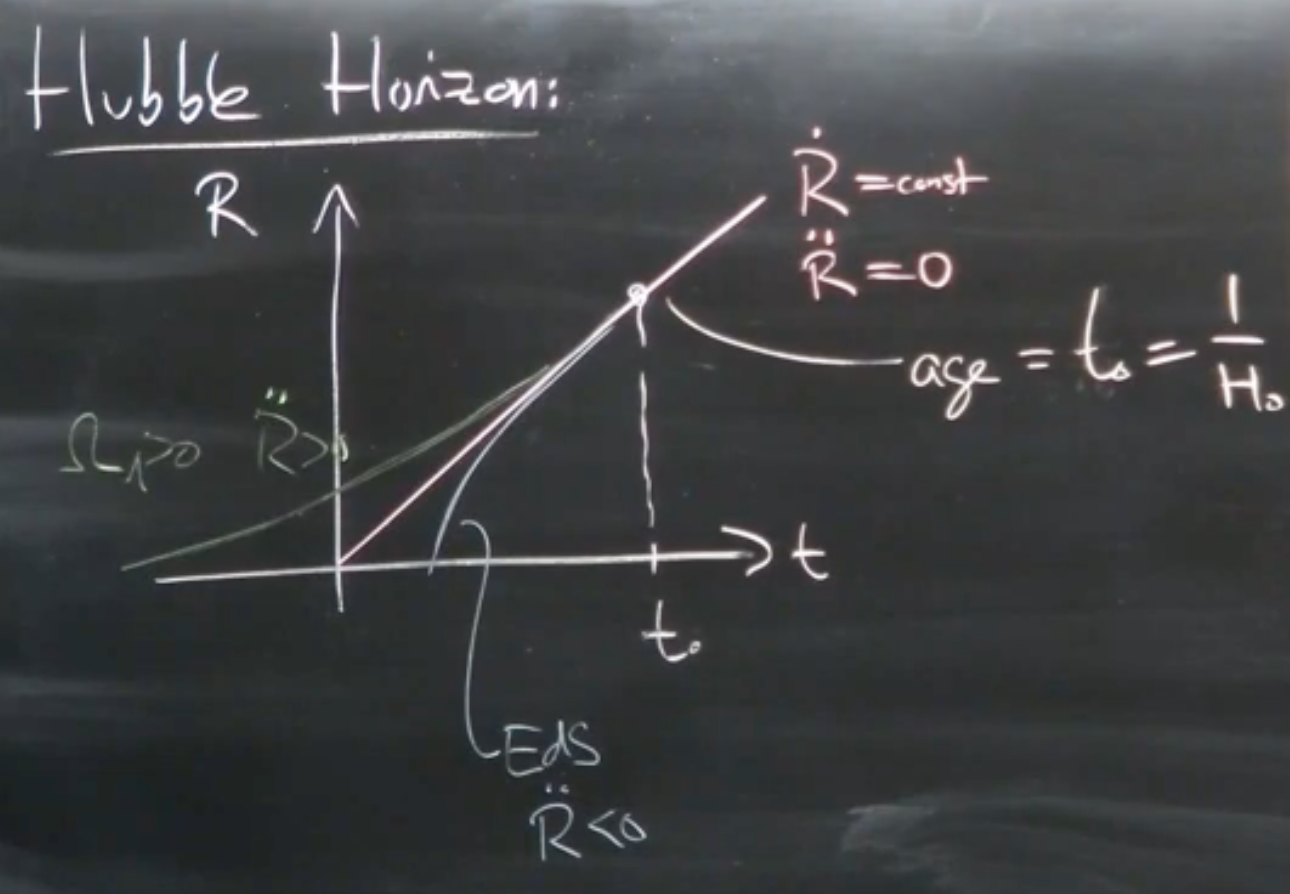 Hubble Horizon:
R
Ṙ = const
R̈ = 0
age = t₀ = 1/H₀
Ω_Λ>0 R̈>0
t
t₀
EdS
R̈ <0